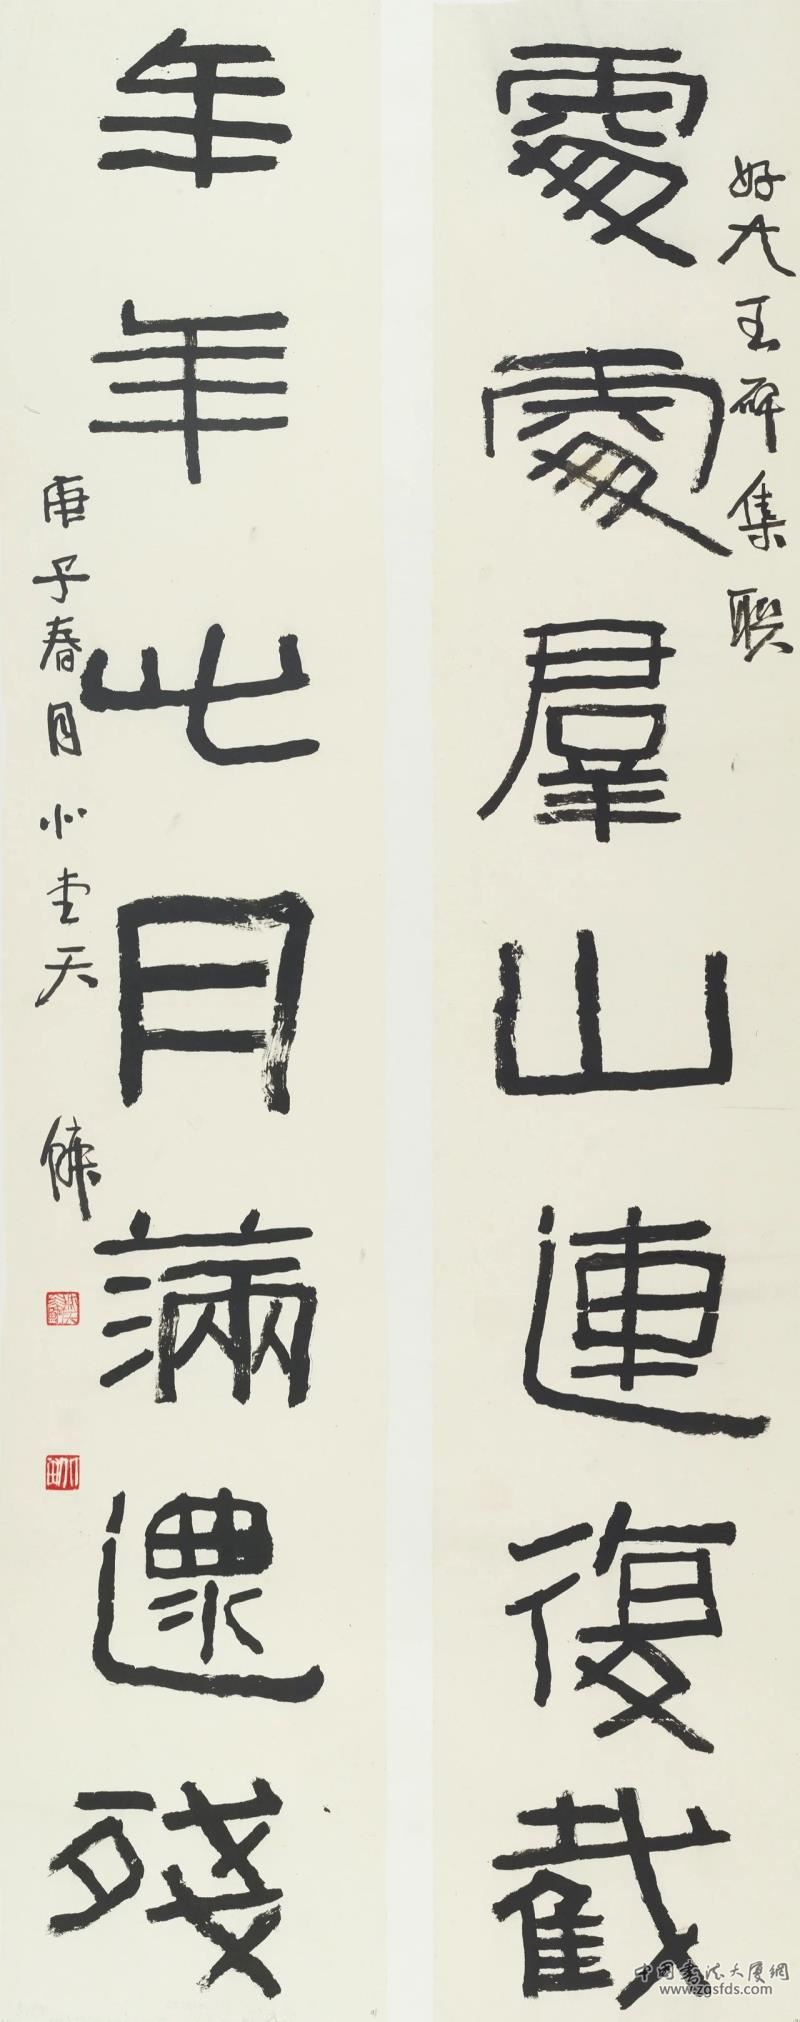 好大王碑集联
處處羣山連復截
年年此月滿還殘
庚子春月小
中國書法大厦網
www.zgsfds.com